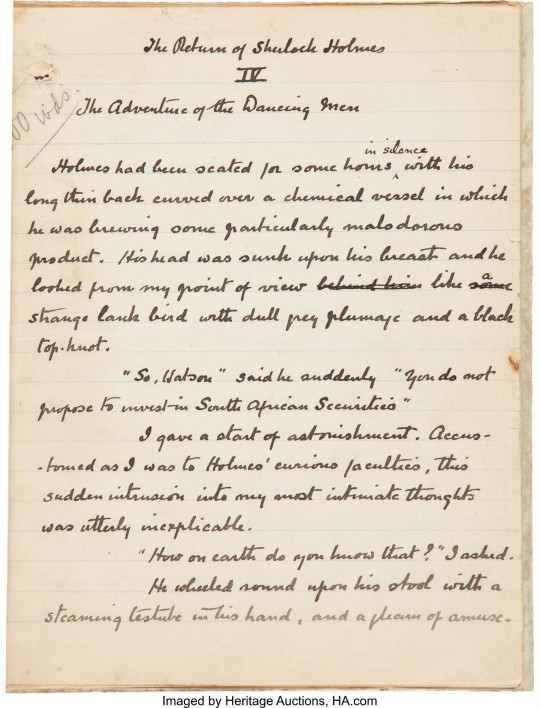 The Return of Sherlock Holmes
IV
The Adventure of the Dancing Men
in silence
Holmes had been seated for some hours with his
long thin back curved over a chemical vessel in which
he was brewing some particularly malodorous
product. His head was sunk upon his breast and he
looked from my point of view behind him like some a
strange lank bird with dull grey plumage and a black
top-knot.
"So, Watson" said he suddenly "You do not
propose to invest in South African Securities"
I gave a start of astonishment. Accus-
-tomed as I was to Holmes' curious faculties, this
sudden intrusion into my most intimate thoughts
was utterly inexplicable.
"How on earth do you know that?" I asked.
He wheeled round upon his stool with a
steaming testube in his hand, and a gleam of amuse-
Imaged by Heritage Auctions, HA.com